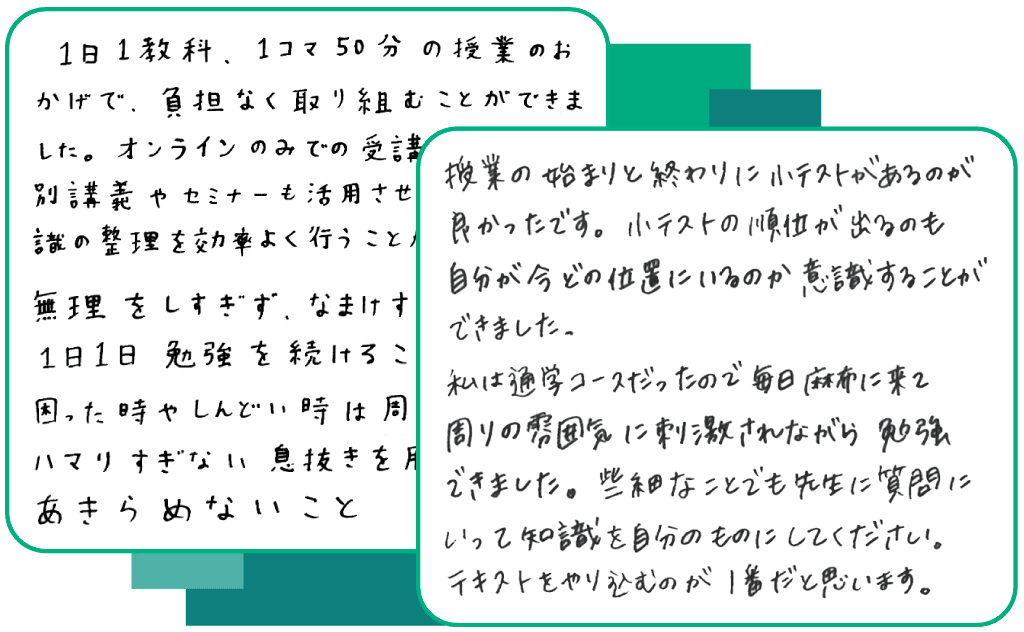 1日1教科、1コマ50分の授業のお
かげで、負担なく取り組むことができま
した。オンラインのみでの受講
別講義やセミナーも活用させ
識の整理を効率よく行うこと
無理をしすぎず、なまけす
1日1日勉強を続けるこ
困った時やしんどい時は周
ハマりすぎない息抜きを
あきらめないこと
授業の始まりと終わりに小テストがあるのが
良かったです。小テストの順位が出るのも
自分が今どの位置にいるのか意識することが
できました。
私は通学コースだったので毎日麻布に来て
周りの雰囲気に刺激されながら勉強
できました。些細なことでも先生に質問に
いって知識を自分のものにしてください。
テキストをやり込むのが1番だと思います。